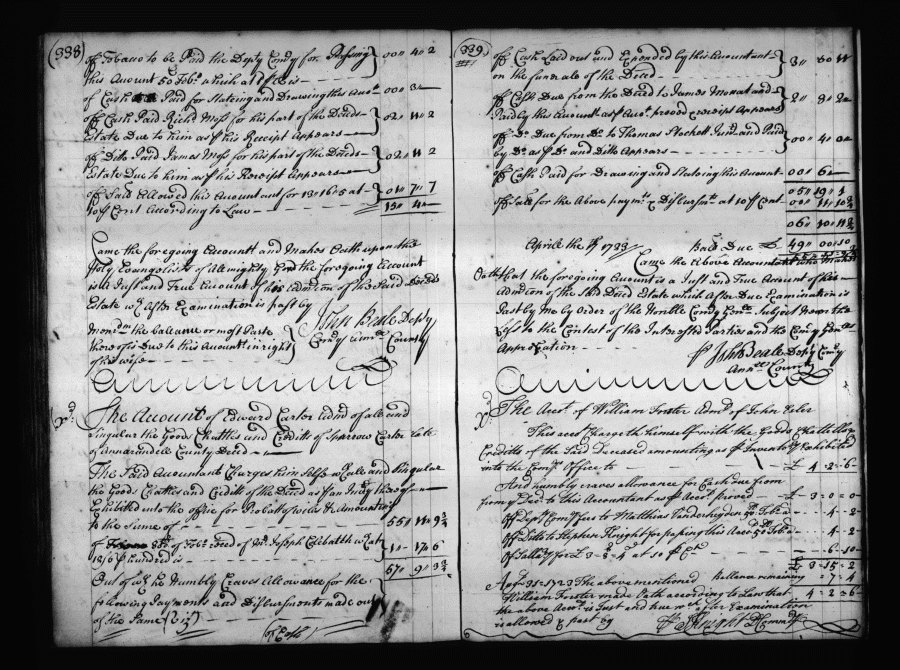 (338)
of Tobacco to be Paid the Depty Comry for Passing this Account 50 Tobo which at is 00 " 4 " 2
of Cash Paid for Stateing and Drawing this Acct 00 " 3
of Cash Paid Richd Moss for his part of the Deceds Estate Due to him as p his Receipt Appears 02 " 11 " 2
of Ditto Paid James Moss for his part of the Deceds Estate Due to him as p his Receipt Appears 02 " 11 " 2
of Sallry Allowed this Accountant for at 10 p Cent According to Law 01 " 7 " 7
Came the foregoing Accountt and makes Oath upon the
Holy Evangelists of Almighty God the foregoing Account
is a Just and True Account of his Admcon of the Said Deceds
Estate wch After Examination is past by
the ballance or most Parte
thereof is Due to this Accountt in right
of his wife
John Beale Depty
Comry County
The Account of Edward Carter Admr of all and
Singular the Goods Chattles and Creditts of Sparrow Carter late
of Annarundell County Deced
The Said Accountant Charges him Selfe wth all and Singular
the Goods Chattles and Creditts of the Deced as p an Invry thereof
Exhibited into the office for Probatt of wills & Amounting
to the Sume of 55 " 11 " 9 3/4
of Tobo Joseph at
p hundred is 1 " 17 " 6
57 " 9 " 3 3/4
Out of wch he Humbly Craves Allowance for the
following Payments and Disbursments made out
of the Same (Vizt)
of Cash
339
of Cash Laid out and Expended by this Accountant
on the funerale of the Deced 3 " 10 " 11
of Cash Due from the Deced to James Mouat and
Paid by this Accountt as p Acct proved & receipt Appears 2 " 8 " 2
of Do Due from Do to Thomas Stockett Junr and Paid
by Do as p Do and Ditto Appears 00 " 4 " 0
of Cash Paid for Drawing and Stateing this Account 00 " 6
05 " 19 " 1
of Sall for the Above paymts & Disbursmts at 10 p Cent 00 " 11 " 10 3/4
06 " 10 " 11 3/4
Aprile the 1723 Balle Due £ 49 " 00 " 10
Came the Above Accountant
Oath that the foregoing Account is a Just and True Account of his
Admcon of the Said Deced Estate which After Due Examination is
Past by me by Order of the Honble Comry Genll Subject Never the
Less to the Contest of the Interested Parties and the Comry Genlls
Approbation
p John Beale Depty Comry
County
The Acct of William Forster Admr of John
This acct Chargeth himself with the Goods Chattells &
Creditts of the Said Deceased amounting as p Inventory Exhibited
into the Comrs Office to £ 4 - 2 - 6
And humbly craves allowance for Cash due from
from ye Decd to this Accountant as p Acct proved £ 3 - 0 - 0
Of Depty Comrs fees to Matthias Vanderheyden 4 - 2
Of Ditto to Stephen Knight for passing this Acct 4 - 2
Of Sallry for £ 3 - 8 - 4 at 10 p Ct 6 - 10
£ 3 - 15 - 2
1723 The above mentioned Ballance remaining 7 - 4
William Forster made Oath according to Law that 4 - 2 - 6
the above Acct is Just and true wch after Examination
is allowed & past by
S Knight